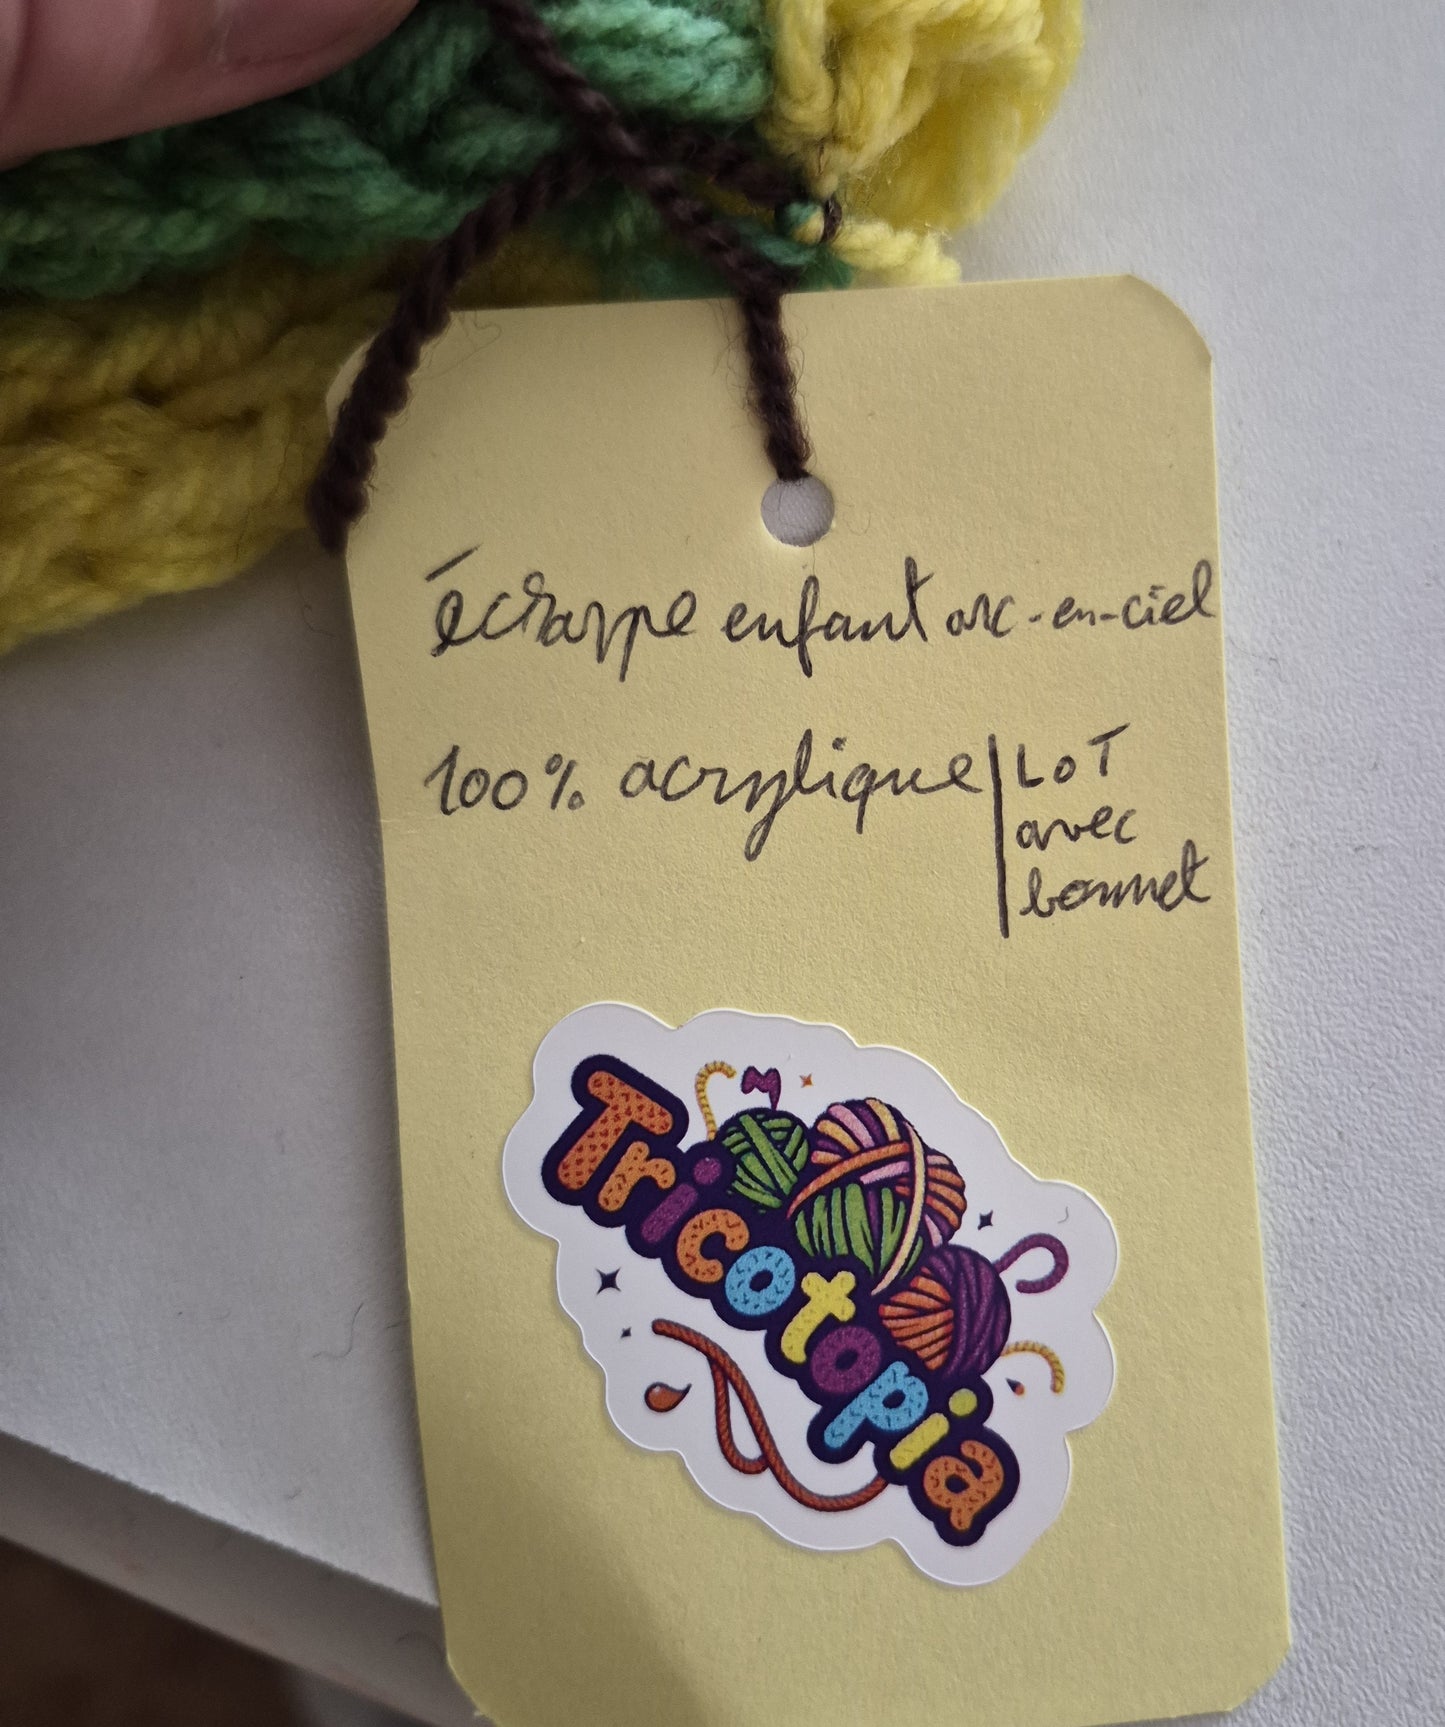 écharpe enfant arc-en-ciel
100% acrylique | LOT
avec
bonnet
Tricotopia